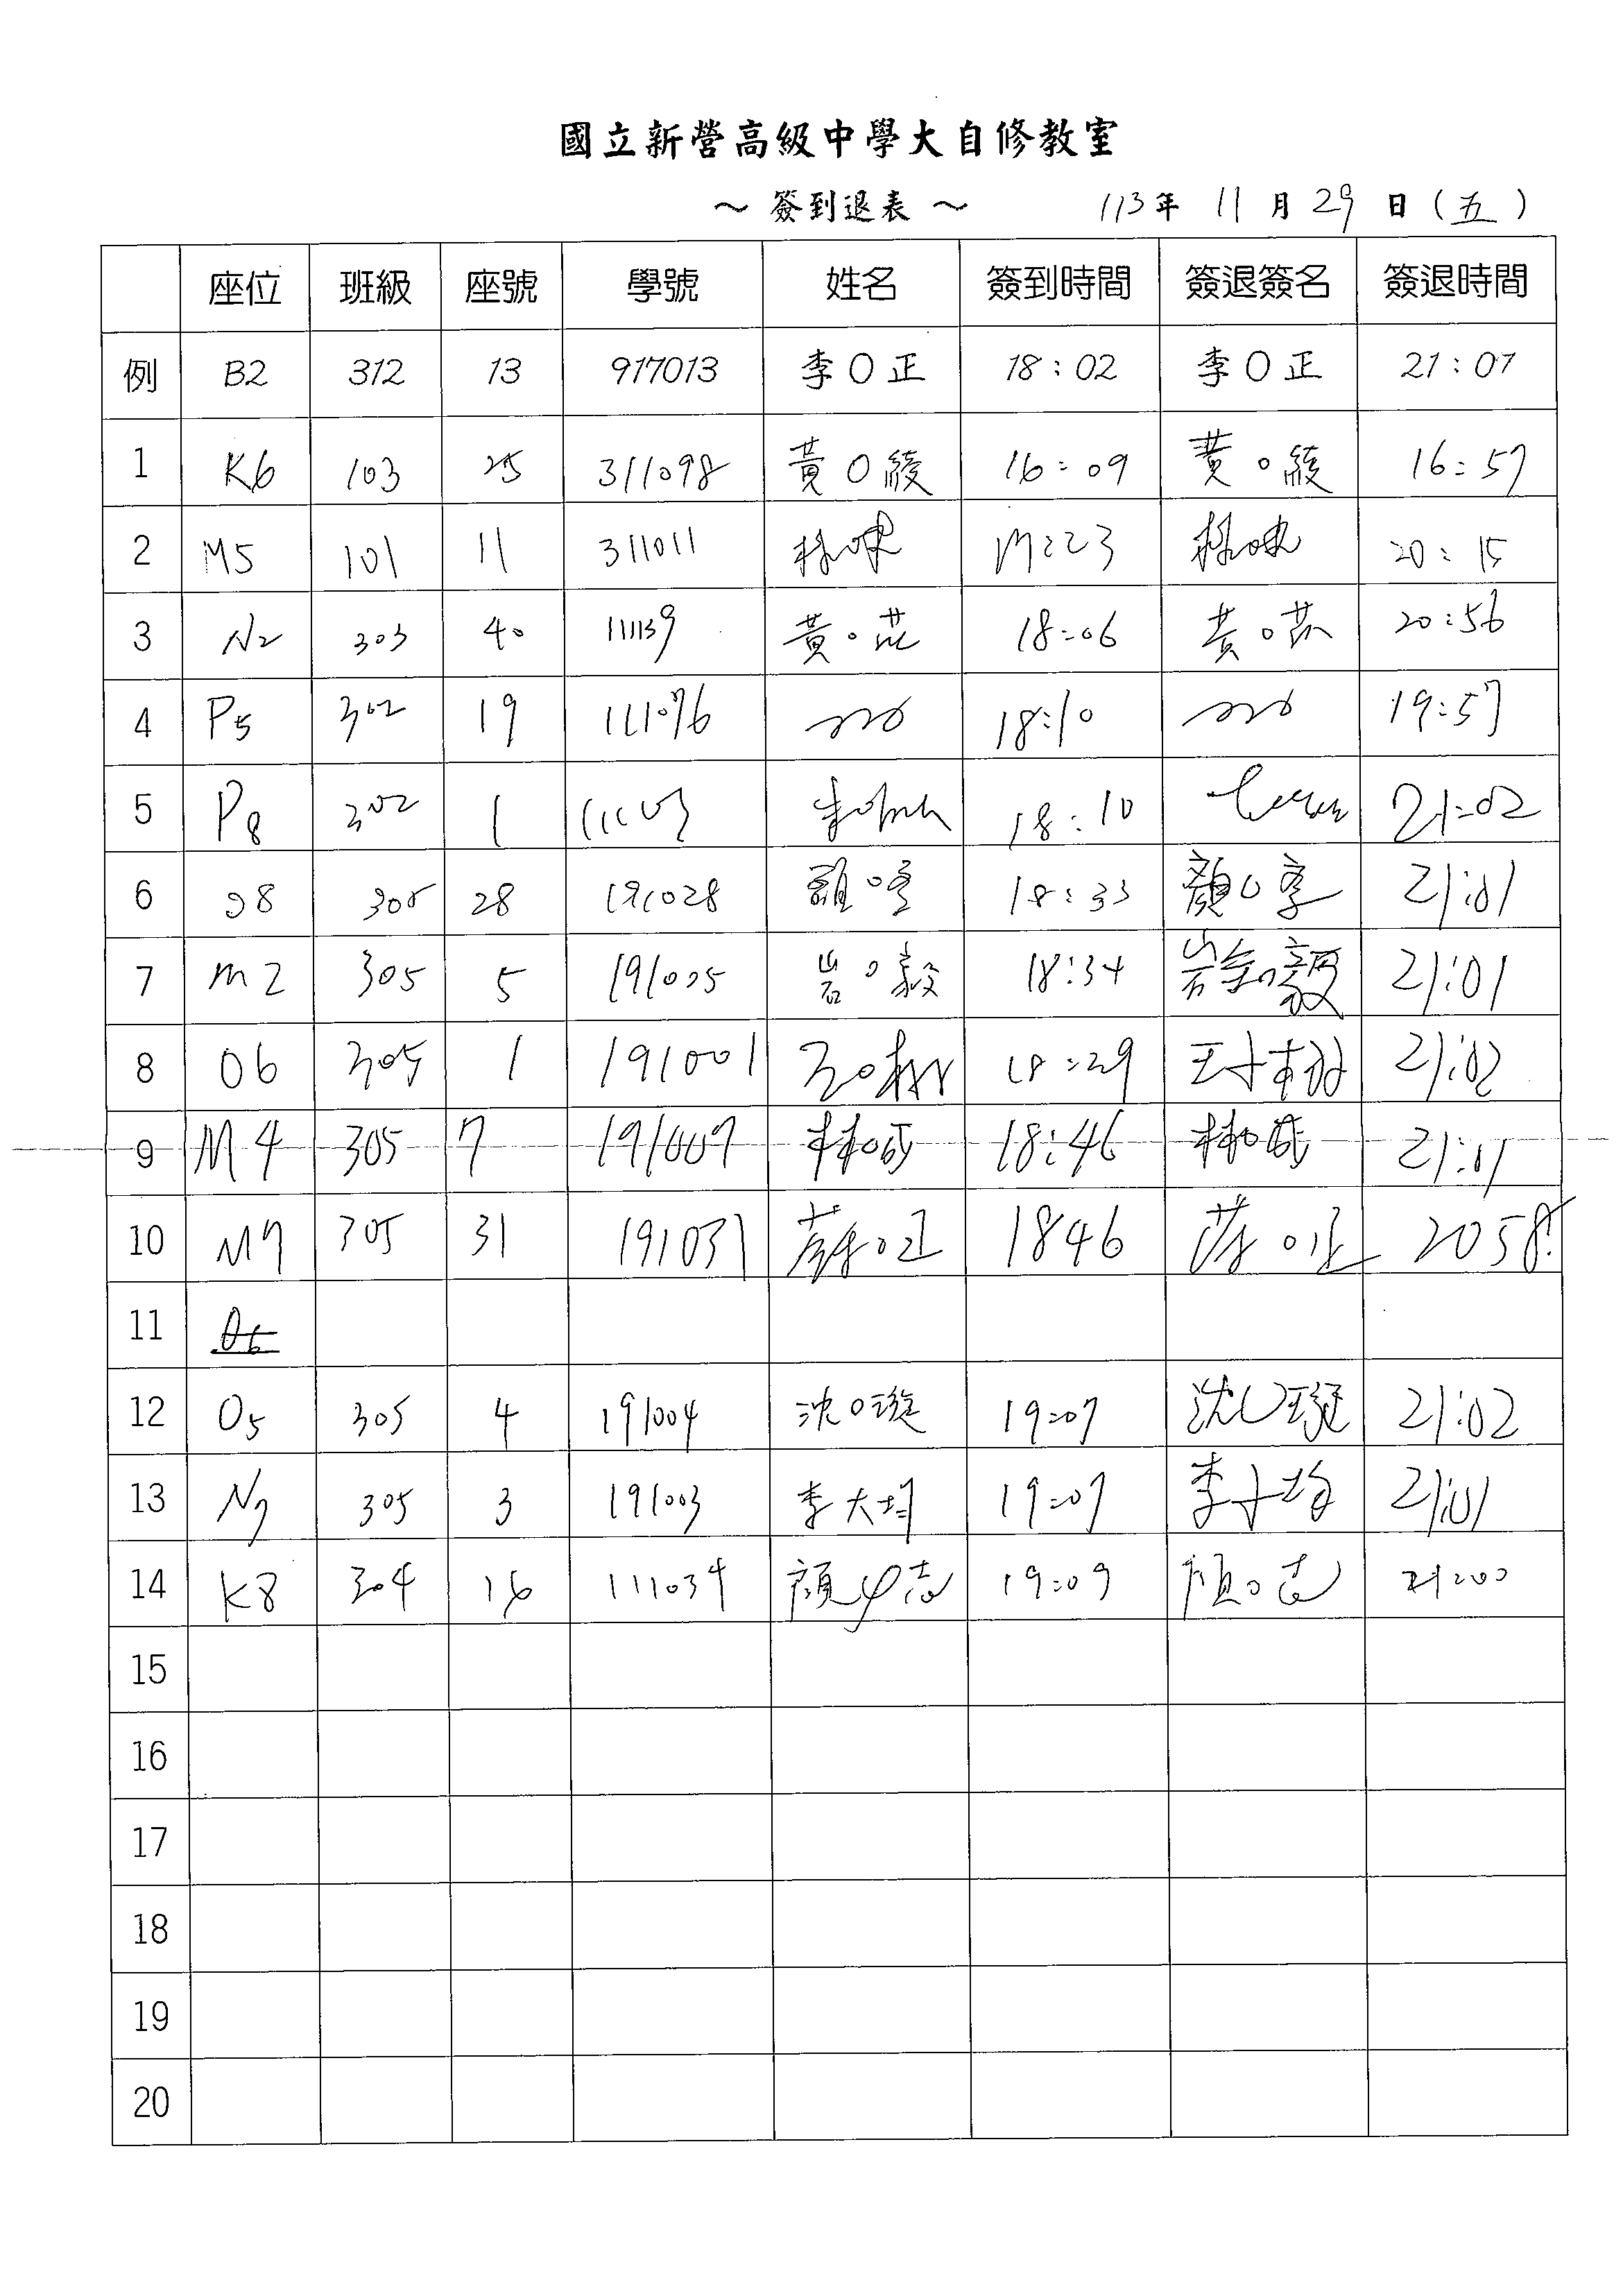 國立新營高級中學大自修教室
～ 簽到退表 ～ 113年 11月 29日(五)
座位 班級 座號 學號 姓名 簽到時間 簽退簽名 簽退時間
例 B2 312 13 917013 李O正 18:02 李O正 21:07
1 K6 103 25 311098 黃O綾 16:09 黃O綾 16:57
2 M5 101 11 311011 17:23 20:15
3 N2 303 40 111139 黃O芷 18:06 黃O 20:56
4 P5 302 19 111076 18:10 19:57
5 P8 302 1 18:10 21:02
6 O8 305 28 191028 18:33 顏O 21:01
7 M2 305 5 191005 岩O毅 18:34 21:01
8 O6 305 1 191001 18:29 21:02
9 M4 305 7 191007 林O成 18:46 林O成 21:01
10 M7 305 31 191031 蔡O 1846 2058
11 O6
12 O5 305 4 191004 沈O璇 19:07 沈O璇 21:02
13 N7 305 3 191003 李大均 19:07 李 均 21:01
14 K8 304 16 111034 顏 志 19:09 顏O志 21:00
15
16
17
18
19
20